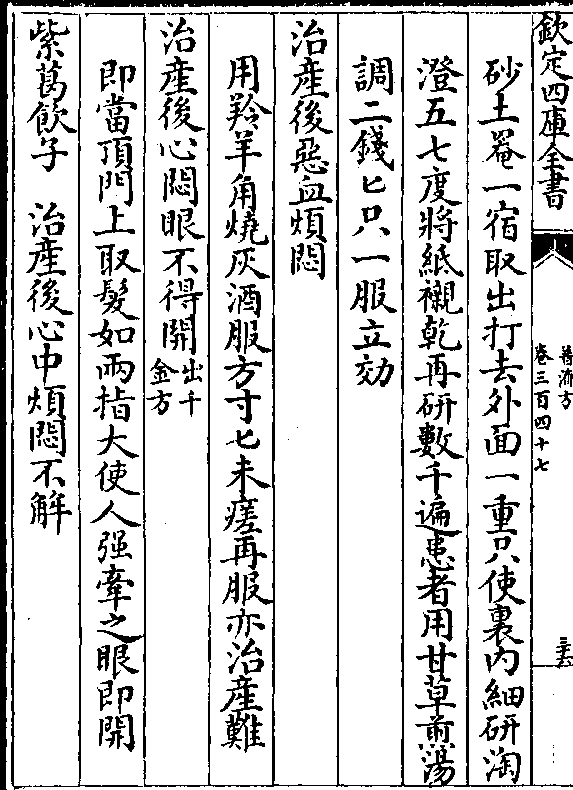 欽定四庫全書
普濟方
卷三百四十七
三十六
砂土罨一宿取出打去外面一重只使裏内細研淘
澄五七度將紙襯乾再研數千遍患者用甘草煎湯
調二錢匕只一服立効
治産後惡血煩悶
用羚羊角燒灰酒服方寸匕未瘥再服亦治産難
治産後心悶眼不得開出千金方
即當頂門上取髮如兩指大使人强牽之眼即開
紫葛飲子　治産後心中煩悶不解